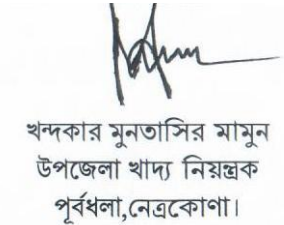 খন্দকার মুনতাসির মামুন
উপজেলা খাদ্য নিয়ন্ত্রক
পূর্বধলা,নেত্রকোণা।